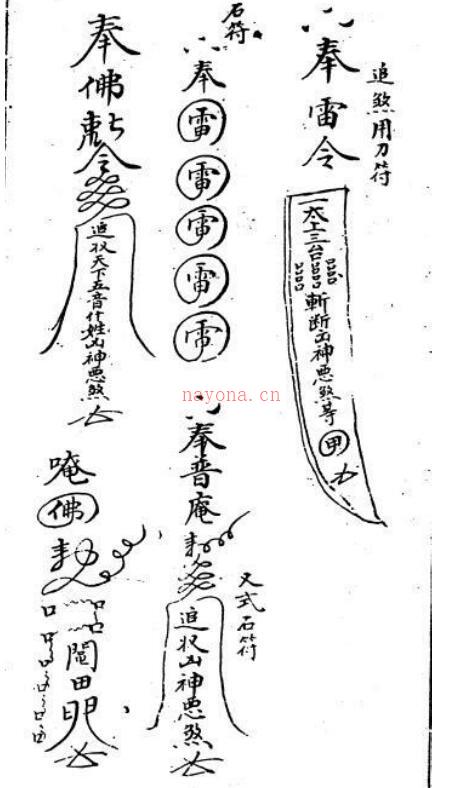 追煞用刀符
奉雷令
太上三台
斬断凶神悪煞等
甲
石符
奉
雷
雷
雷
雷
雷
奉普庵
又式石符
追收凶神悪煞
奉佛敕令
追收天下五音什姓凶神悪煞
唵
佛
敕
nayona.cn